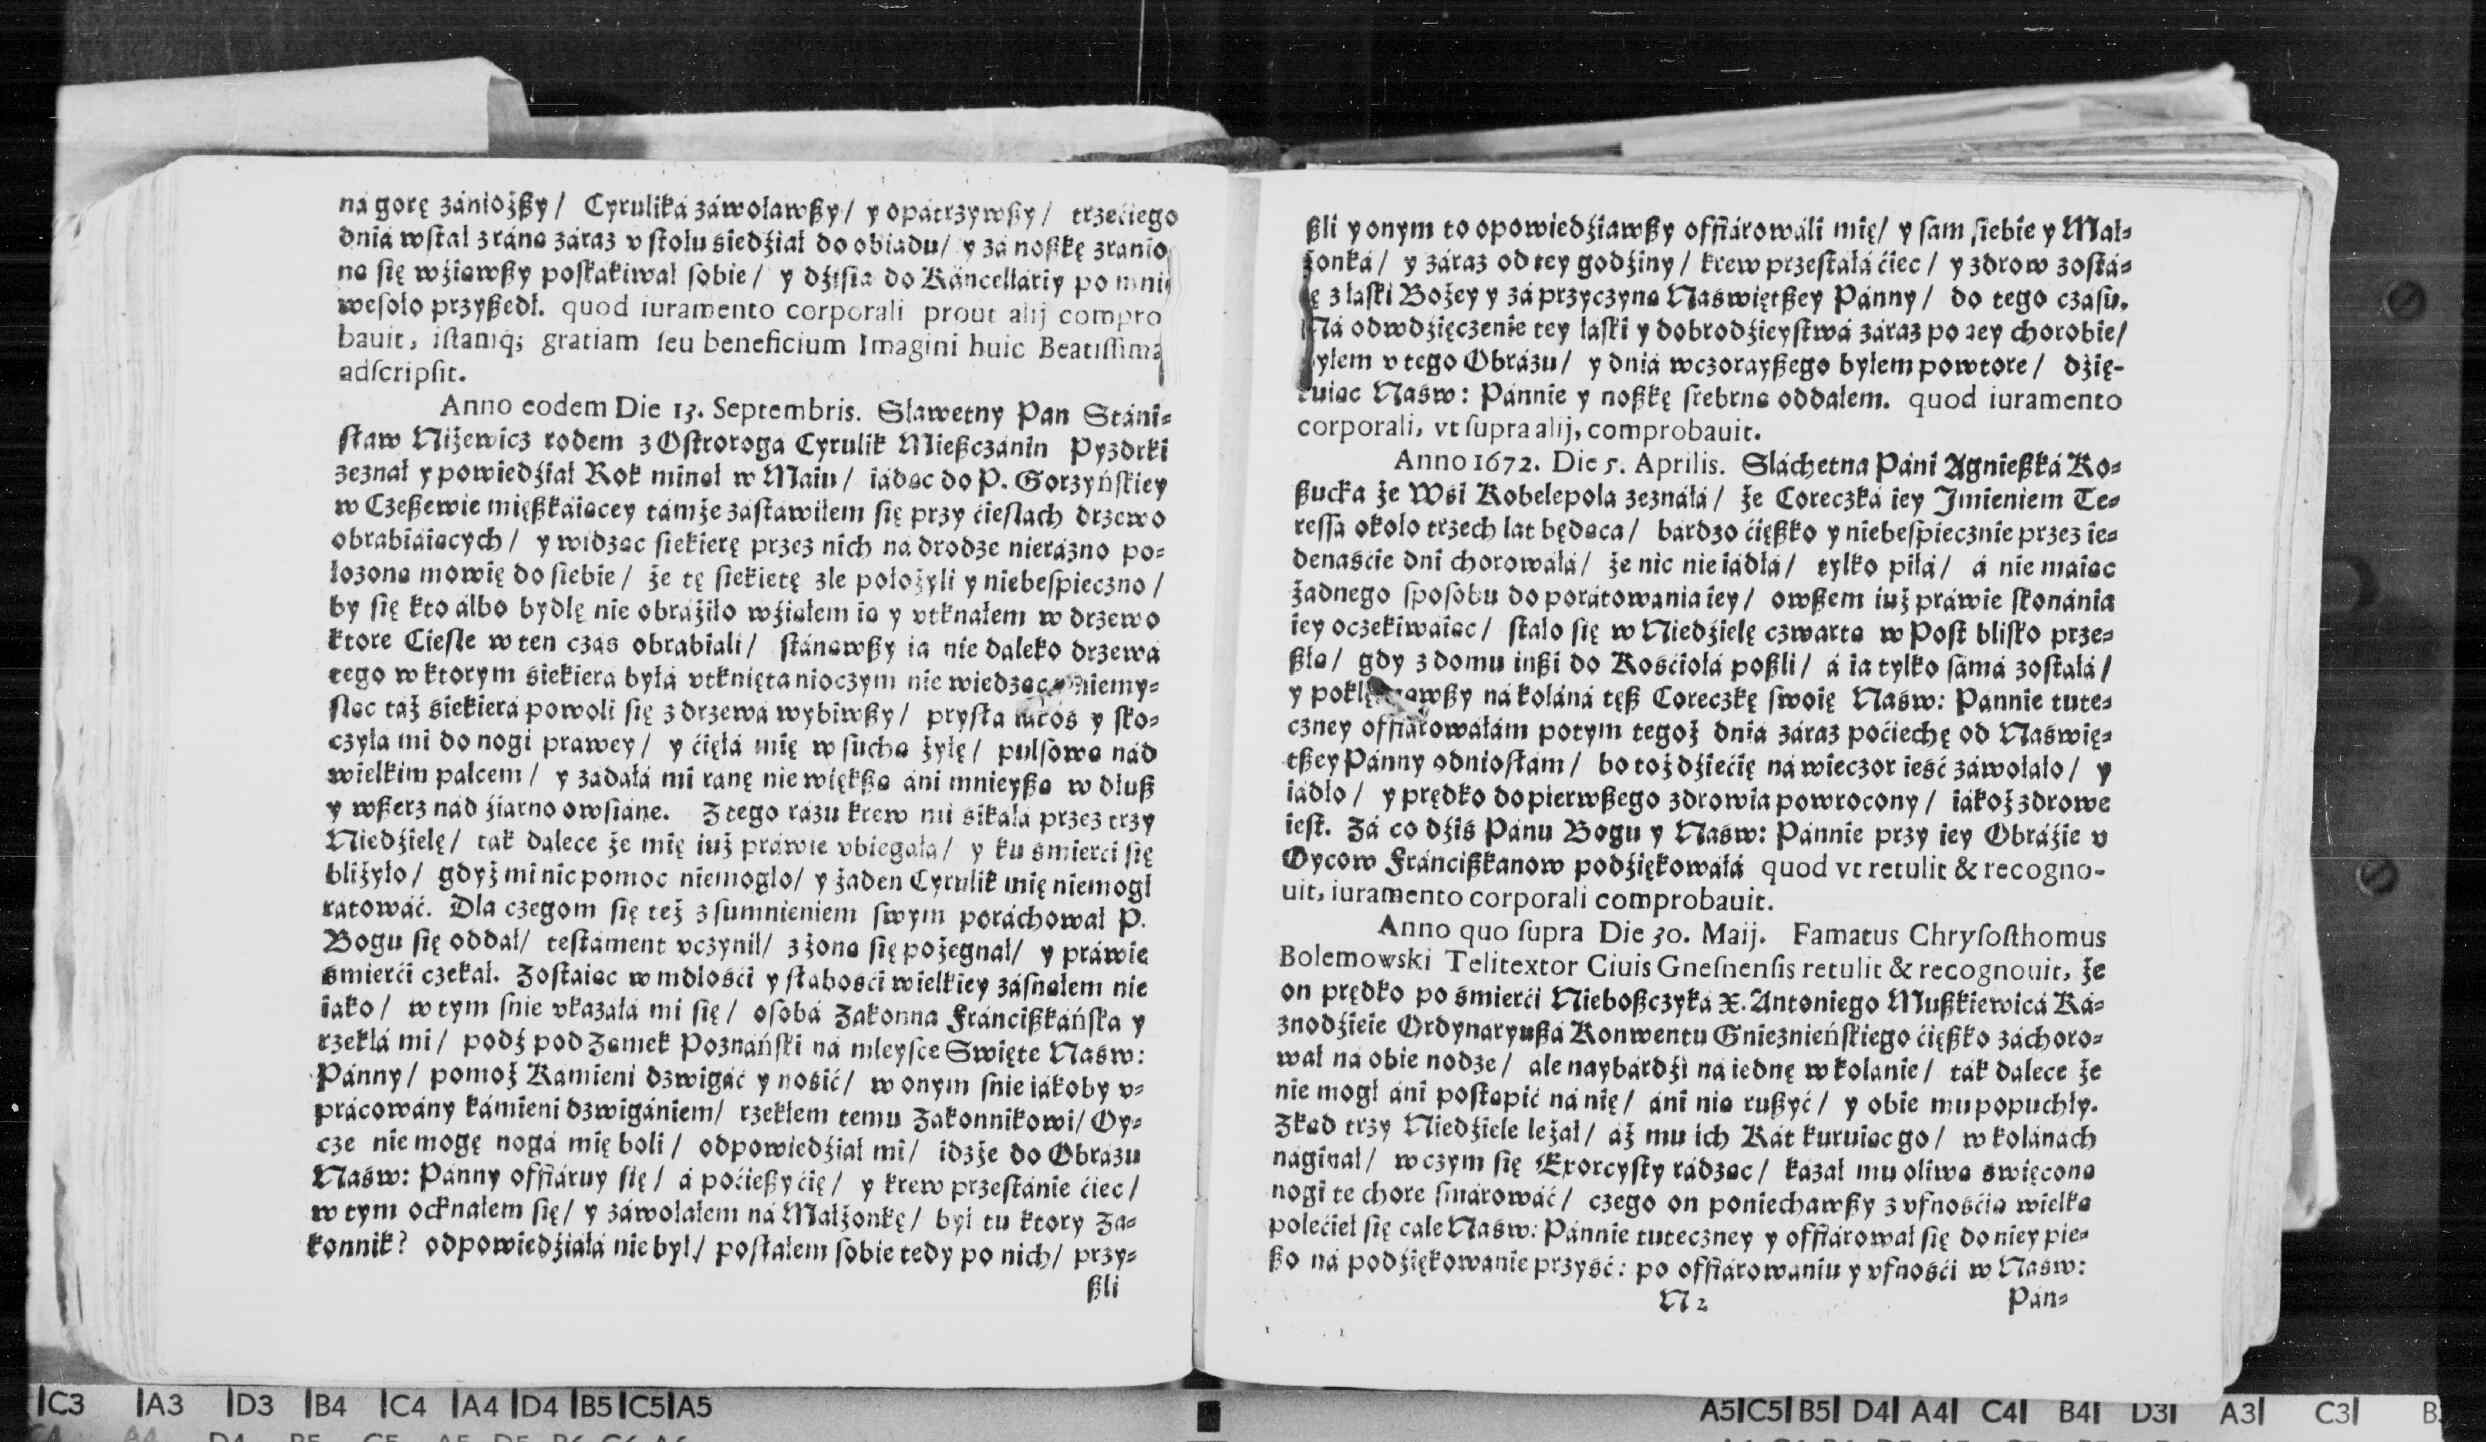 ná gorę zániożßy/ Cyruliká záwoławßy/ y opátrzywßy/ trzećiego
dniá wstał z ráná záraz v stołu śiedźiał do obiadu/ y zá noßkę zránio
ną się wźiąwßy poskákiwał sobie/ y dźiśia do Káncellariy po mnie
wesoło przyßedł. quod iuramento corporali prout alij compro
bauit, istamq; gratiam seu beneficium Imagini huic Beatissimæ
adscripsit.
Anno eodem Die 13. Septembris. Sławetny Pan Stáni-
sław Niżewicz rodem z Ostroroga Cyrulik Mießczánin Pyzdrki
zeznał y powiedźiał Rok minął w Maiu/ iádąc do P. Gorzyńskiey
w Czeßewie mięßkáiącey támże zástáwiłem się przy ćieslach drzewo
obrabiáiących/ y widząc siekierę przez nich ná drodze nierázno po-
łozoną mowię do siebie/ że tę siekierę zle położyli y niebespieczno/
by się kto álbo bydlę nie obráźiło wźiąłem ią y vtknąłem w drzewo
ktore Ciesle w ten czás obrabiáli/ stánąwßy ia nie dáleko drzewá
tego w ktorym śiekierá byłá vtknięta nioczym nie wiedząc niemy-
sląc táż śiekierá powoli się z drzewá wybiwßy/ prysłá y sko-
czyłá mi do nogi prawey/ y ćięłá mię w suchą żyłę/ pulsową nád
wielkim pálcem/ y zádáłá mi ránę nie większą áni mnieyßą w dłuß
y wßerz nád źiarno owsiáne. Z tego rázu krew mi śikáłá przez trzy
Niedźielę/ ták dálece że mię iuż práwie vbiegáłá/ y ku śmierći się
bliżyło/ gdyż mi nic pomoc niemogło/ y żaden Cyrulik mię niemogł
rátowáć. Dla czegom się też z sumnieniem swym poráchował P.
Bogu się oddał/ testáment vczynił/ z żoną się pożegnał/ y práwie
śmierći czekał. Zostáiąc w mdłośći y słábośći wielkiey zásnąłem nie
iáko/ w tym śnie vkazáłá mi się/ osobá Zakonna Fránćißkáńska y
rzekłá mi/ podź pod Zamek Poznáński ná mieysce Swięte Naśw:
Pánny/ pomoż Kámieni dzwigáć y nośić/ w onym śnie iákoby v-
prácowány kámieni dzwigániem/ rzekłem temu Zakonnikowi/ Oy-
cze nie mogę nogá mię boli/ odpowiedźiał mi/ idzże do Obrázu
Naśw: Pánny offiáruy się/ á poćießy ćię/ y krew przestánie ćiec/
w tym ocknąłem się/ y záwołałem ná Małżonkę/ był tu ktory Za-
konnik? odpowiedźiałá nie był/ posłałem sobie tedy po nich/ przy-
ßli
ßli y onym to opowiedźiawßy offiárowáli mię/ y sam siebie y Mał-
żonká/ y záraz od tey godźiny/ krew przestáłá ćiec/ y zdrow zostá-
ę z łáski Bożey y zá przyczyną Naświętßey Pánny/ do tego czásu.
Ná odwdźięczenie tey łáski y dobrodźieystwá záraz po tey chorobie/
byłem v tego Obrázu/ y dniá wczorayßego byłem powtore/ dźię-
kuiąc Naśw: Pánnie y noßkę srebrną oddałem. quod iuramento
corporali, vt supra alij, comprobauit.
Anno 1672. Die 5. Aprilis. Sláchetna Páni Agnießká Ko-
ßucka że Wśi Kobelepola zeznáłá/ że Coreczká iey Jmieniem Te-
ressa około trzech lat będąca/ bárdzo ćięßko y niebespiecznie przez ie-
denaśćie dni chorowáłá/ że nic nie iádłá/ tylko piłá/ á nie máiąc
żadnego sposobu do porátowánia iey/ owßem iuż práwie skonánia
iey oczekiwáiąc/ stáło się w Niedźielę czwartą w Post blisko prze-
ßłą/ gdy z domu inßi do Kośćiołá poßli/ á ia tylko sámá zostáłá/
y ná koláná tęß Coreczkę swoię Naśw: Pánnie tute-
czney offiárowáłám potym tegoż dniá záraz poćiechę od Naświę-
tßey Pánny odniosłám/ bo toż dźiećię ná wieczor ieść záwołáło/ y
iádło/ y prędko do pierwßego zdrowia powrocony/ iákoż zdrowe
iest. Zá co dźiś Pánu Bogu y Naśw: Pánnie przy iey Obráźie v
Oycow Fránćißkanow podźiękowáłá quod vt retulit & recogno-
uit, iuramento corporali comprobauit.
Anno quo supra Die 30. Maij. Famatus Chrysosthomus
Bolemowski Telitextor Ciuis Gnesnensis retulit & recognouit, że
on prędko po śmierći Nieboßczyká X. Antoniego Mußkiewicá Ká-
znodźieie Ordynaryußá Konwentu Gnieźnieńskiego ćięßko záchoro-
wał ná obie nodze/ ale naybárdźi ná iednę w kolánie/ ták dálece że
nie mogł áni postąpić ná nię/ áni nią rußyć/ y obie mu popuchły.
Zkąd trzy Niedźiele leżał/ áż mu ich Kát kuruiąc go/ w kolánách
náginał/ w czym się Exorcysty rádząc/ kazał mu oliwą święconą
nogi te chore smárowáć/ czego on poniechawßy z vfnośćią wielką
polećieł się cále Naśw: Pánnie tuteczney y offiárował się do niey pie-
ßo ná podźiękowánie przyść: po offiárowániu y vfnośći w Naśw:
N 2
Pán-